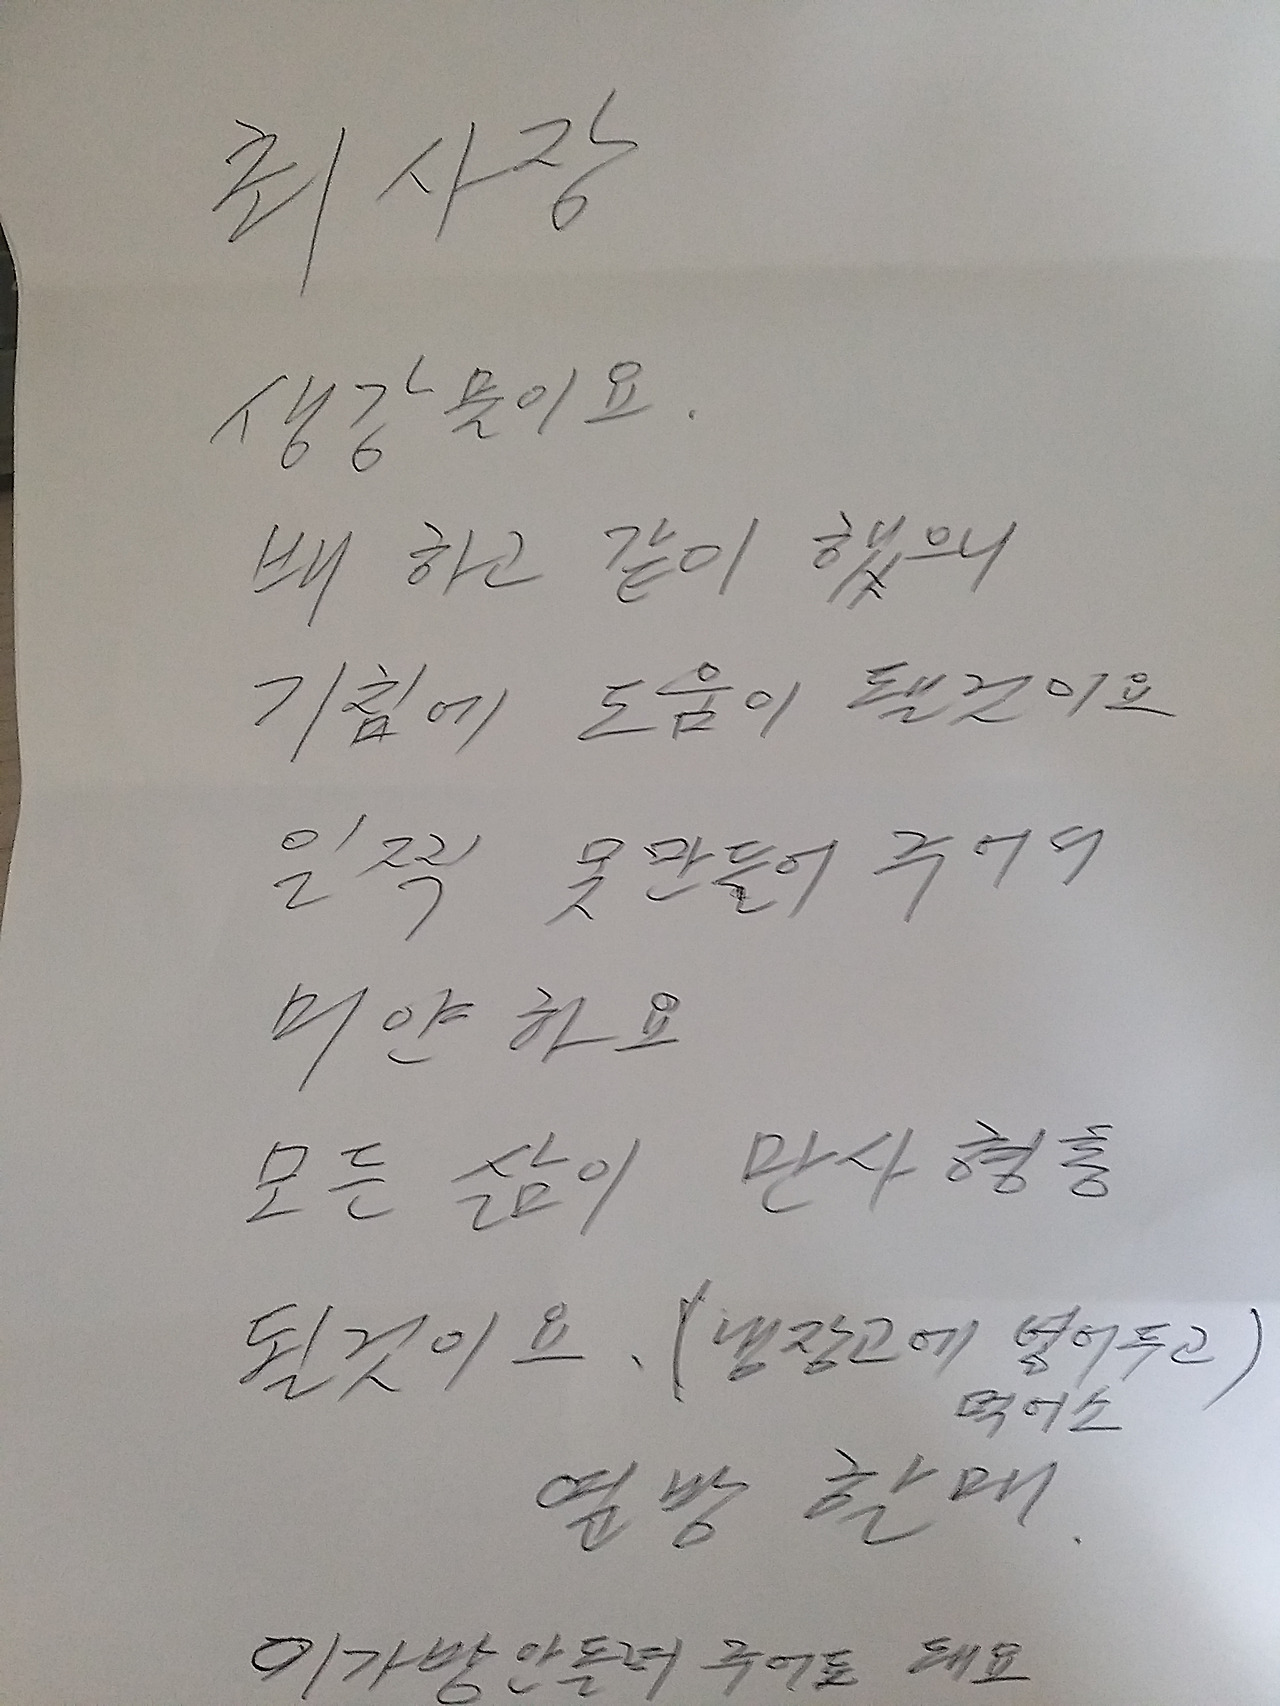 최 사장
생강물이요.
배 하고 같이 했으니
기침에 도움이 됄것이요
일찍 못만들어 주어서
미안 하요
모든 삶이 만사 형통
될것이요. (냉장고에 넣어두고)
먹어소
옆방 할매.
이가방 안돌려 주어도 돼요